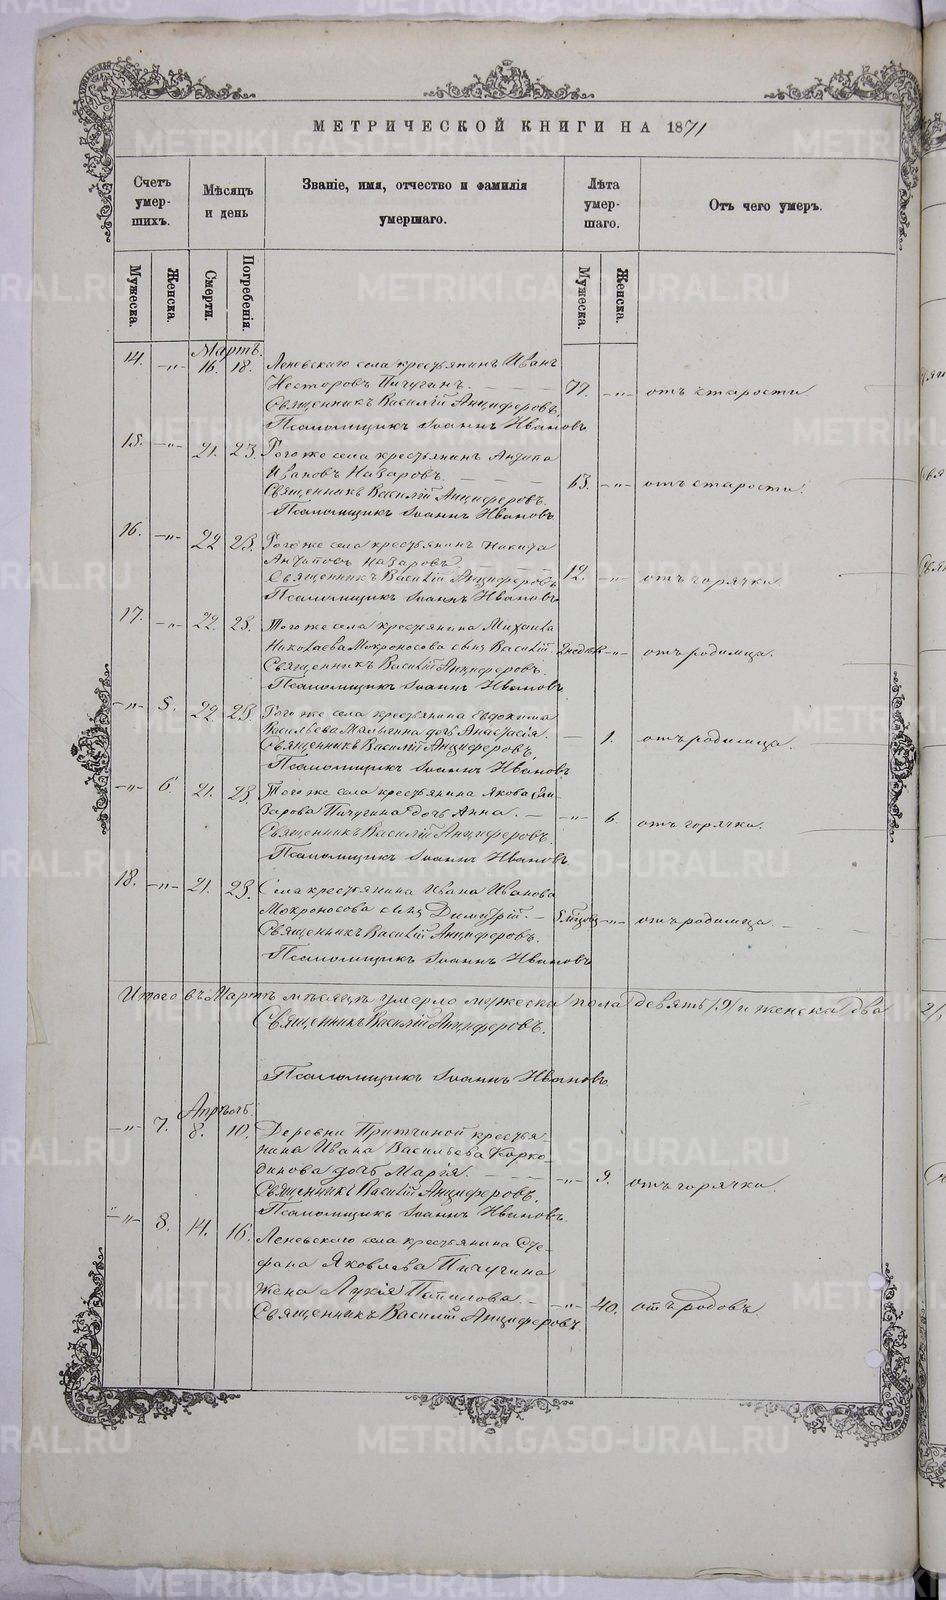 МЕТРИЧЕСКОЙ КНИГИ НА 1871
Счетъ умер-шихъ.
Мѣсяцъ и день
Званіе, имя, отчество и фамилія умершаго.
Лѣта умер-шаго.
Отъ чего умеръ.
Мужеска. Женска. Смерти. Погребенія. Мужеска. Женска.
Мартъ.
14. -"- 16. 18. Леневскаго села крестьянинъ Иванъ
Несторовъ Пичугинъ. 77. -"- отъ старости
Священникъ Василій Анциферовъ.
Псаломщикъ Іоаннъ Ивановъ
15. -"- 21. 23. Того же села крестьянинъ Антипа
Ивановъ Назаровъ. 63. -"- отъ старости.
Священникъ Василій Анциферовъ.
Псаломщикъ Іоаннъ Ивановъ
16. -"- 22 23. Того же села крестьянинъ Никита
Антиповъ Назаровъ. 12. -"- отъ горячки.
Священникъ Василій Анциферовъ
Псаломщикъ Іоаннъ Ивановъ
17. -"- 22. 23. Того же села крестьянина Михаила
Николаева Мокроносова сынъ Василій. -"- отъ родимца.
Священникъ Василій Анциферовъ.
Псаломщикъ Іоаннъ Ивановъ
-"- 5. 22. 23. Того же села крестьянина Евдокима
Васильева дочь Анастасія. — 1. отъ родимца.
Священникъ Василій Анциферовъ,
Псаломщикъ Іоаннъ Ивановъ
-"- 6. 21. 23. Того же села крестьянина Якова
Пичугина дочь Анна. -"- 6. отъ горячки.
Священникъ Василій Анциферовъ.
Псаломщикъ Іоаннъ Ивановъ
18. -"- 21. 23. Села крестьянина Ивана Иванова
Мокроносова сынъ Димитрій. -"- отъ родимца.
Священникъ Василій Анциферовъ.
Псаломщикъ Іоаннъ Ивановъ
Итого въ Мартѣ мѣсяцѣ умерло мужеска пола девять /9/ и женска два
Священникъ Василій Анциферовъ.
Псаломщикъ Іоаннъ Ивановъ
Апрѣль.
-"- 7. 8. 10. Деревни крестья-
нина Ивана Васильева Корко-
динова дочь Марія. -"- 9. отъ горячки.
Священникъ Василій Анциферовъ.
Псаломщикъ Іоаннъ Ивановъ.
-"- 8. 14. 16. Леневскаго села крестьянина Сте-
фана Яковлева Пичугина
жена Лукія -"- 40. отъ родовъ.
Священникъ Василій Анциферовъ.
METRIKI.GASO-URAL.RU